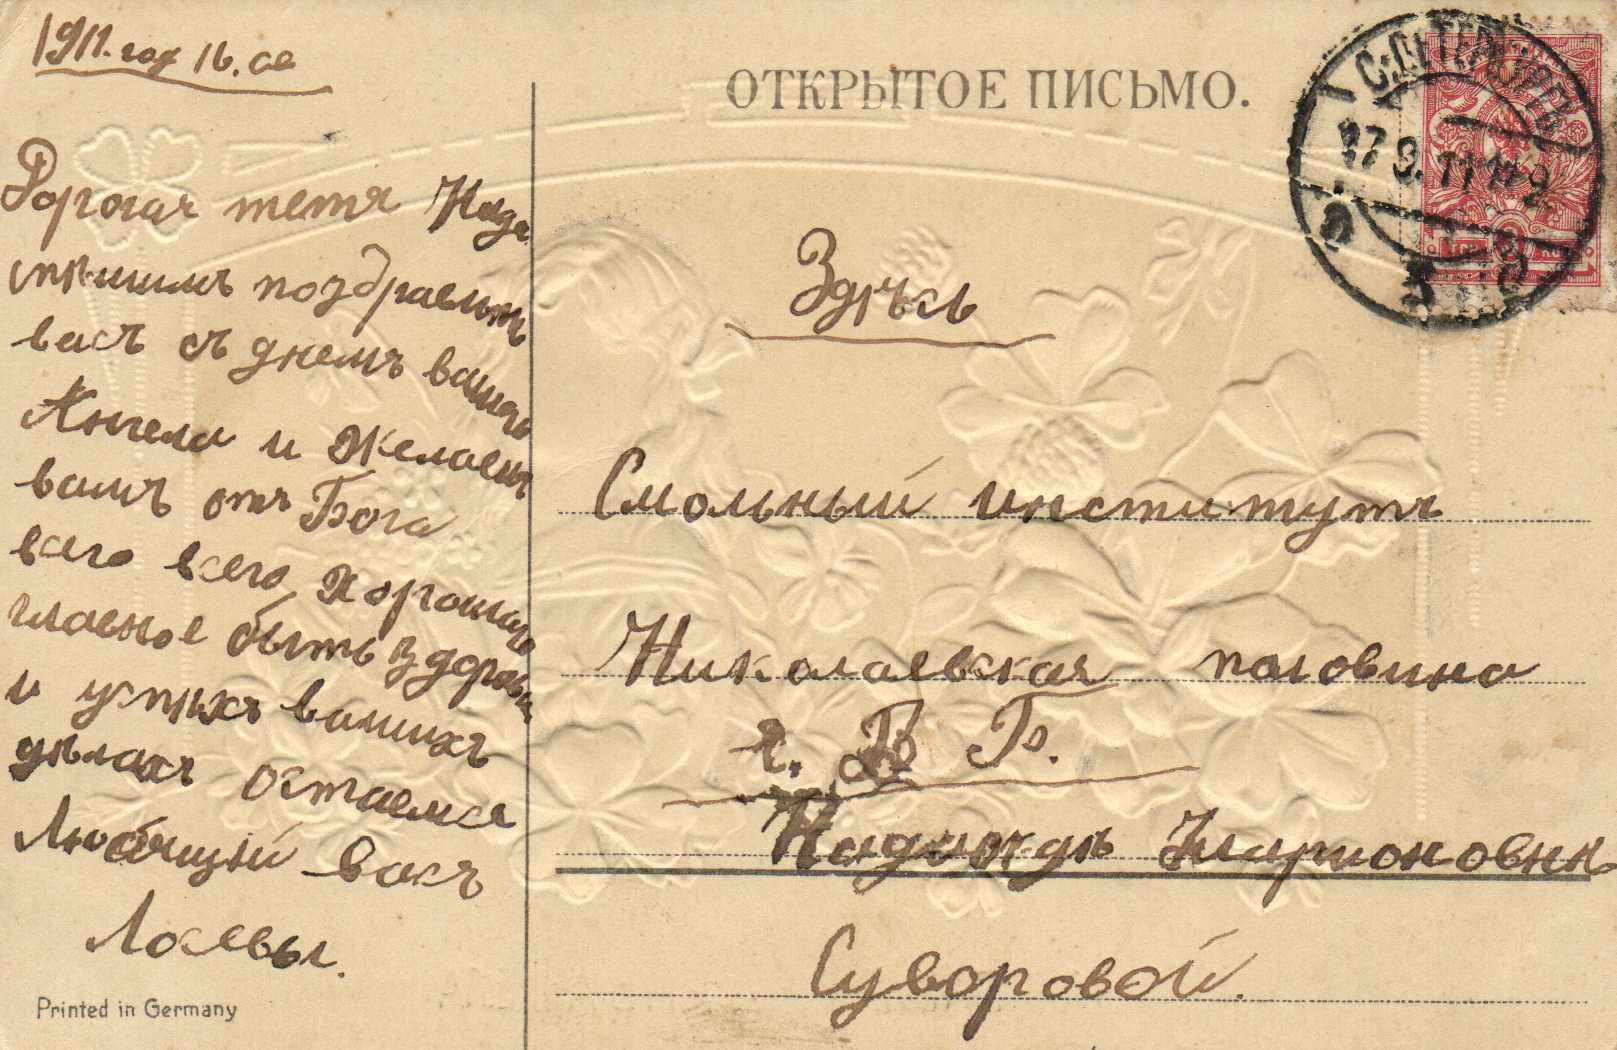 1911. год 16. се
ОТКРЫТОЕ ПИСЬМО.
С.ПЕТЕРБУРГЪ
17 9. 11
Дорогая тетя Надя
спѣшимъ поздравить
васъ съ днемъ вашего
Ангела и желаемъ
вамъ отъ Бога
всего всего хорошаго
главное быть здоровы
и успѣхъ вашихъ
дѣлахъ остаемся
Любящій васъ
Лосевы.
Printed in Germany
Здѣсь
Смольный институтъ
Николаевская половина
г. В Б.
Надеждѣ Иларионовнѣ
Суворовой.